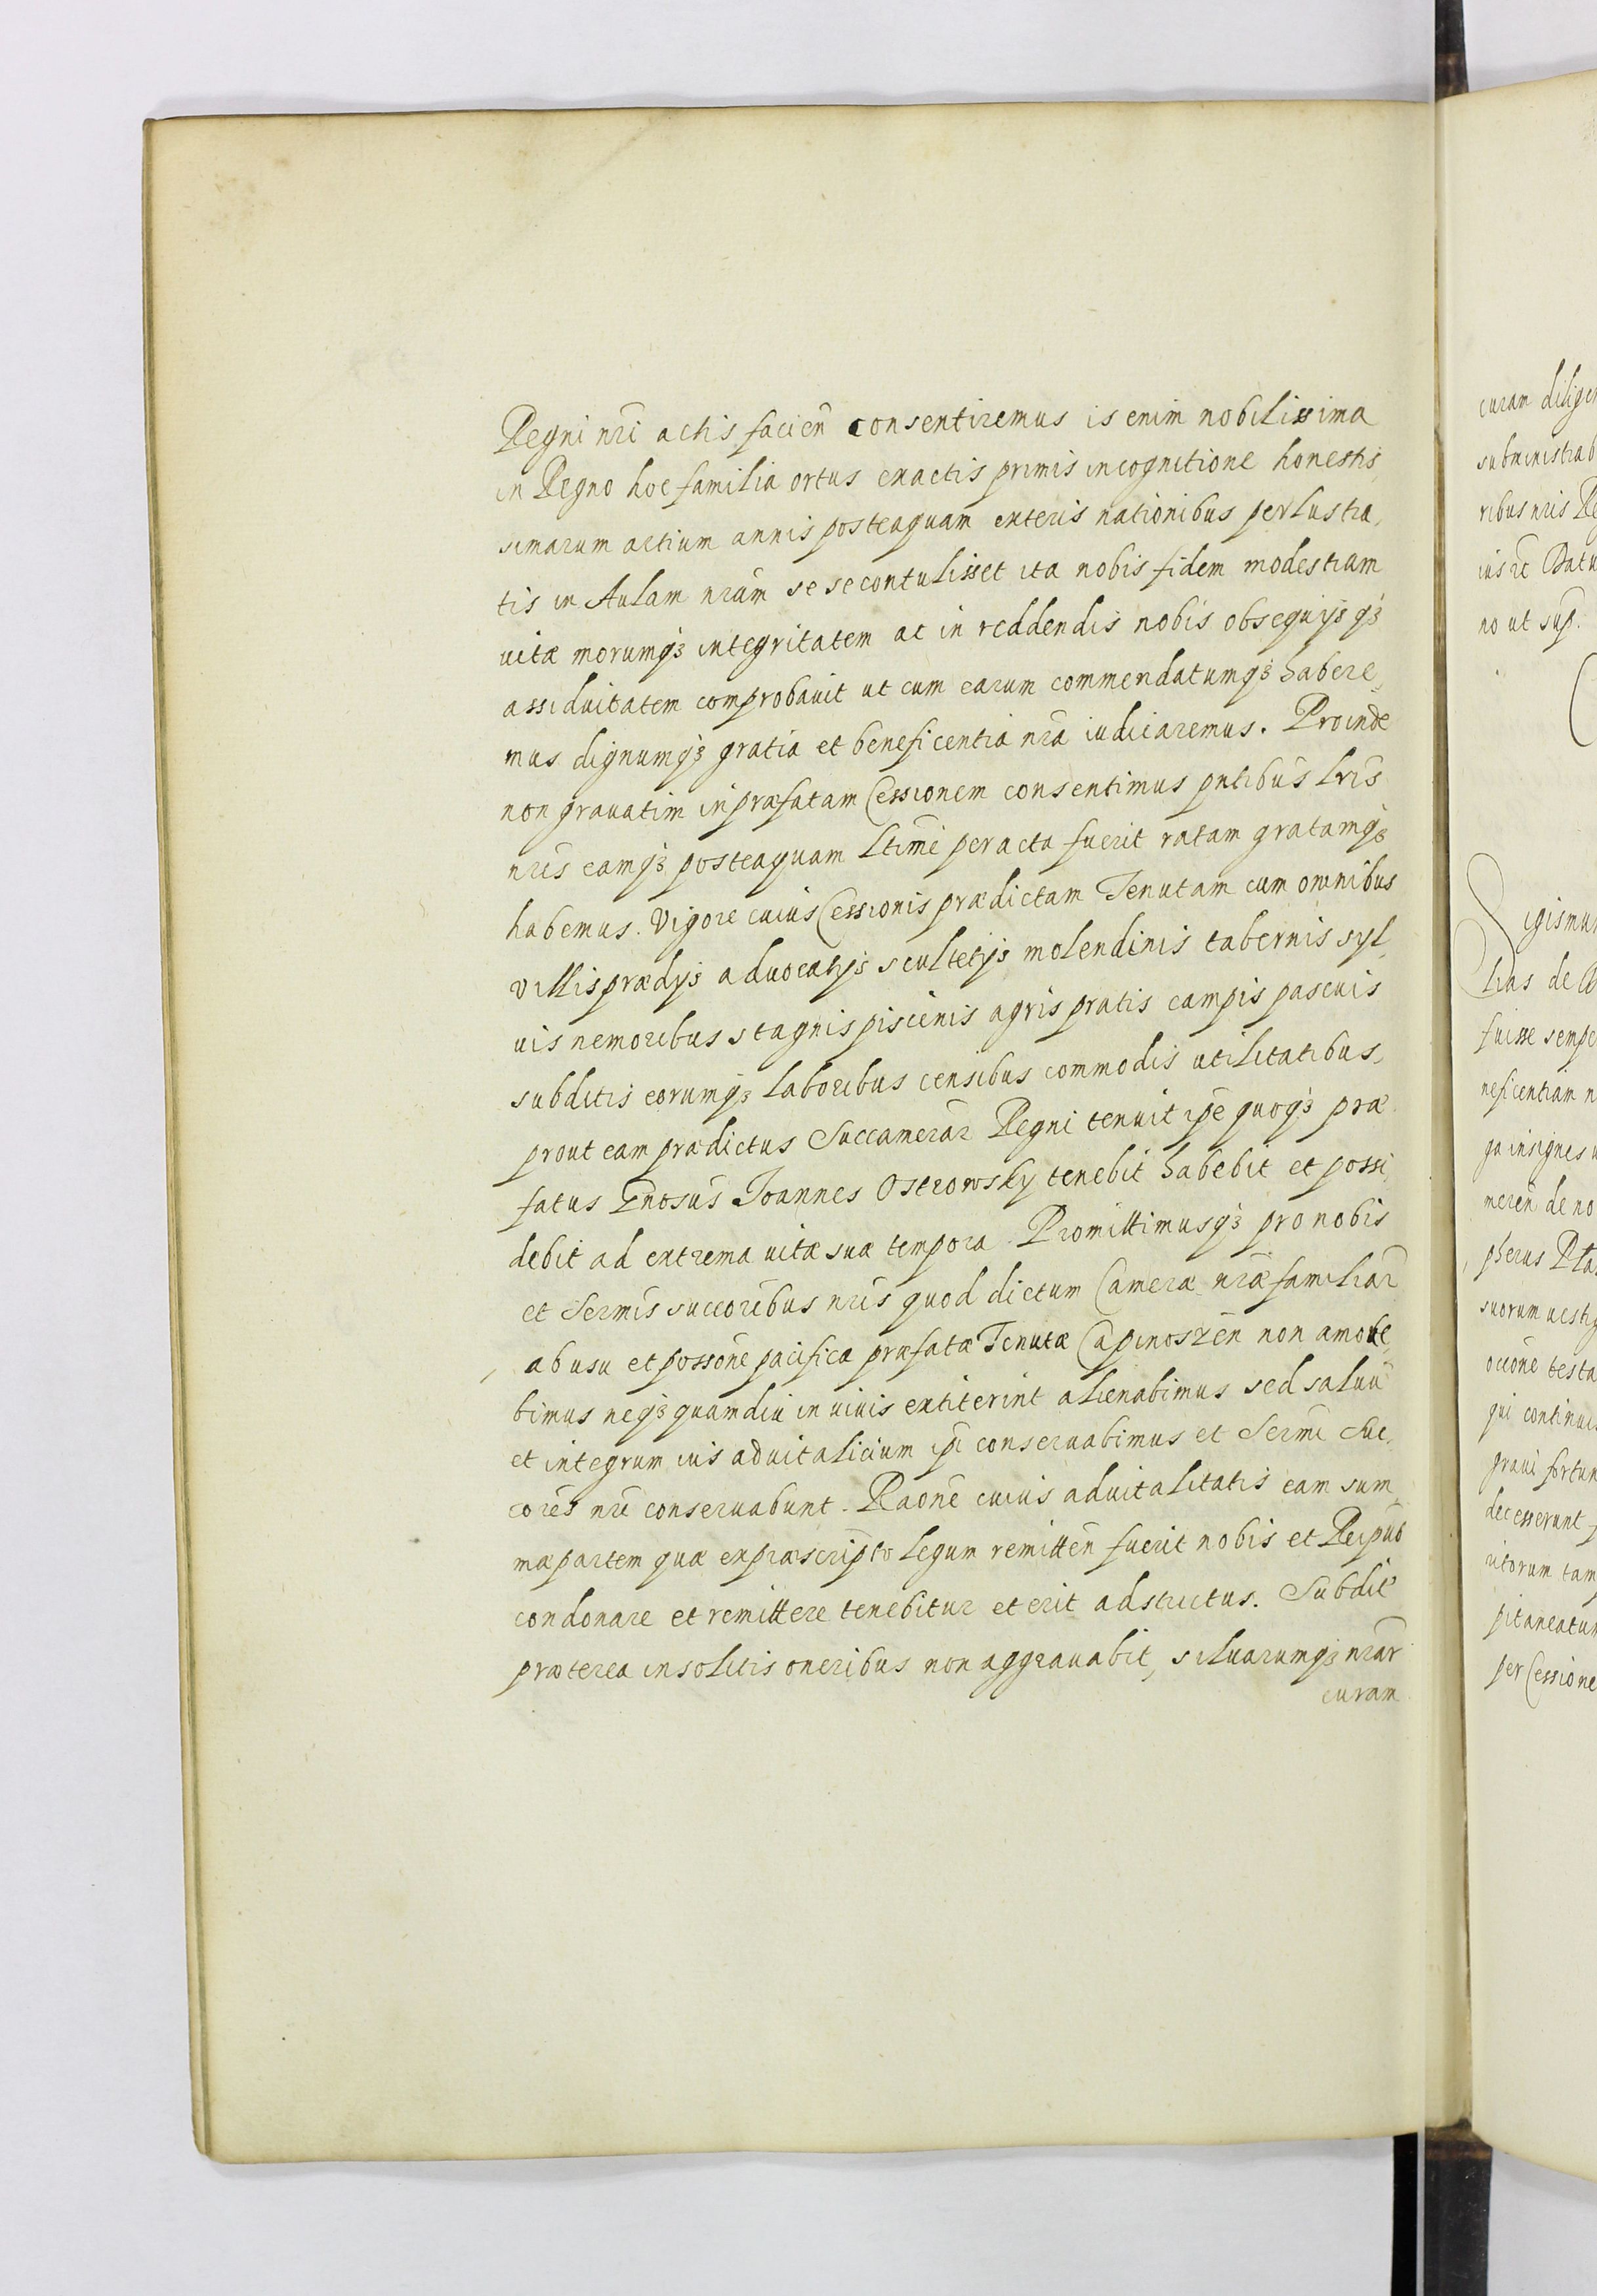 Regni nr̃i actis facieñ consentiremus is enim nobilissima
in Regno hoc familia ortus exactis primis in cognitione honestis,
simarum artium annis posteaquam exteris nationibus perlustra,
tis in Aulam nr̃am sese contulisset ita nobis fidem modestiam
uitæ morumqꝫ integritatem ac in reddendis nobis obsequijs qꝫ
assiduitatem comprobauit ut cum carum commendatumqꝫ habere,
mus dignumqꝫ gratia et beneficentia nr̃a iudicaremus. Proinde
non grauatim in præfatam Cessionem consentimus pñtibus lr̃is
nr̃is eamqꝫ posteaquam ltimẽ peracta fuerit ratam gratamqꝫ
habemus. Vigore cuius Cessionis prædictam Tenutam cum omnibus
villis prædijs aduocatijs scultetijs molendinis tabernis syl,
uis nemoribus stagnis piscinis agris pratis campis pascuis
subditis eorumqꝫ laboribus censibus commodis utilitatibus,
prout eam prædictus Succamerar̃ Regni tenuit ip̃e quoqꝫ præ
fatus Gñosus Joannes Ostrowsky tenebit habebit et possi,
debit ad extrema uitæ suæ tempora. Promittimusqꝫ pro nobis
et Serm̃is succoribus nr̃is quod dictum Cameræ nr̃æ familiar̃
ab usu et possoñe pacifica præfatæ Tenutæ Capinoszeñ non amoue,
bimus neqꝫ quamdiu in uiuis extiterint alienabimus sed saluũ
et integrum ius aduitalicium ip̃i conseruabimus et Serm̃i Suc,
cores nr̃i conseruabunt. Raoñe cuius aduitalitatis eam sum
mæ partem quæ ex præscripto legum remitteñ fuerit nobis et Reipub
condonare et remittere tenebitur et erit adstrictus. Subdit̃
præterea insolitis oneribus non aggrauabit, siluarumqꝫ nr̃ar̃
curam
curam dilige
subministrab
ribus nr̃is Re
ius ꝛc Datu
no ut sup.
Sigismun
lias de
fuisse sempe
neficentiam n
ga insignes
mereñ de no
pherus
suorum uestig
ocione testa
qui continuis
graui fortun
decesserunt
uitorum tam
pitaneatum
per Cessione